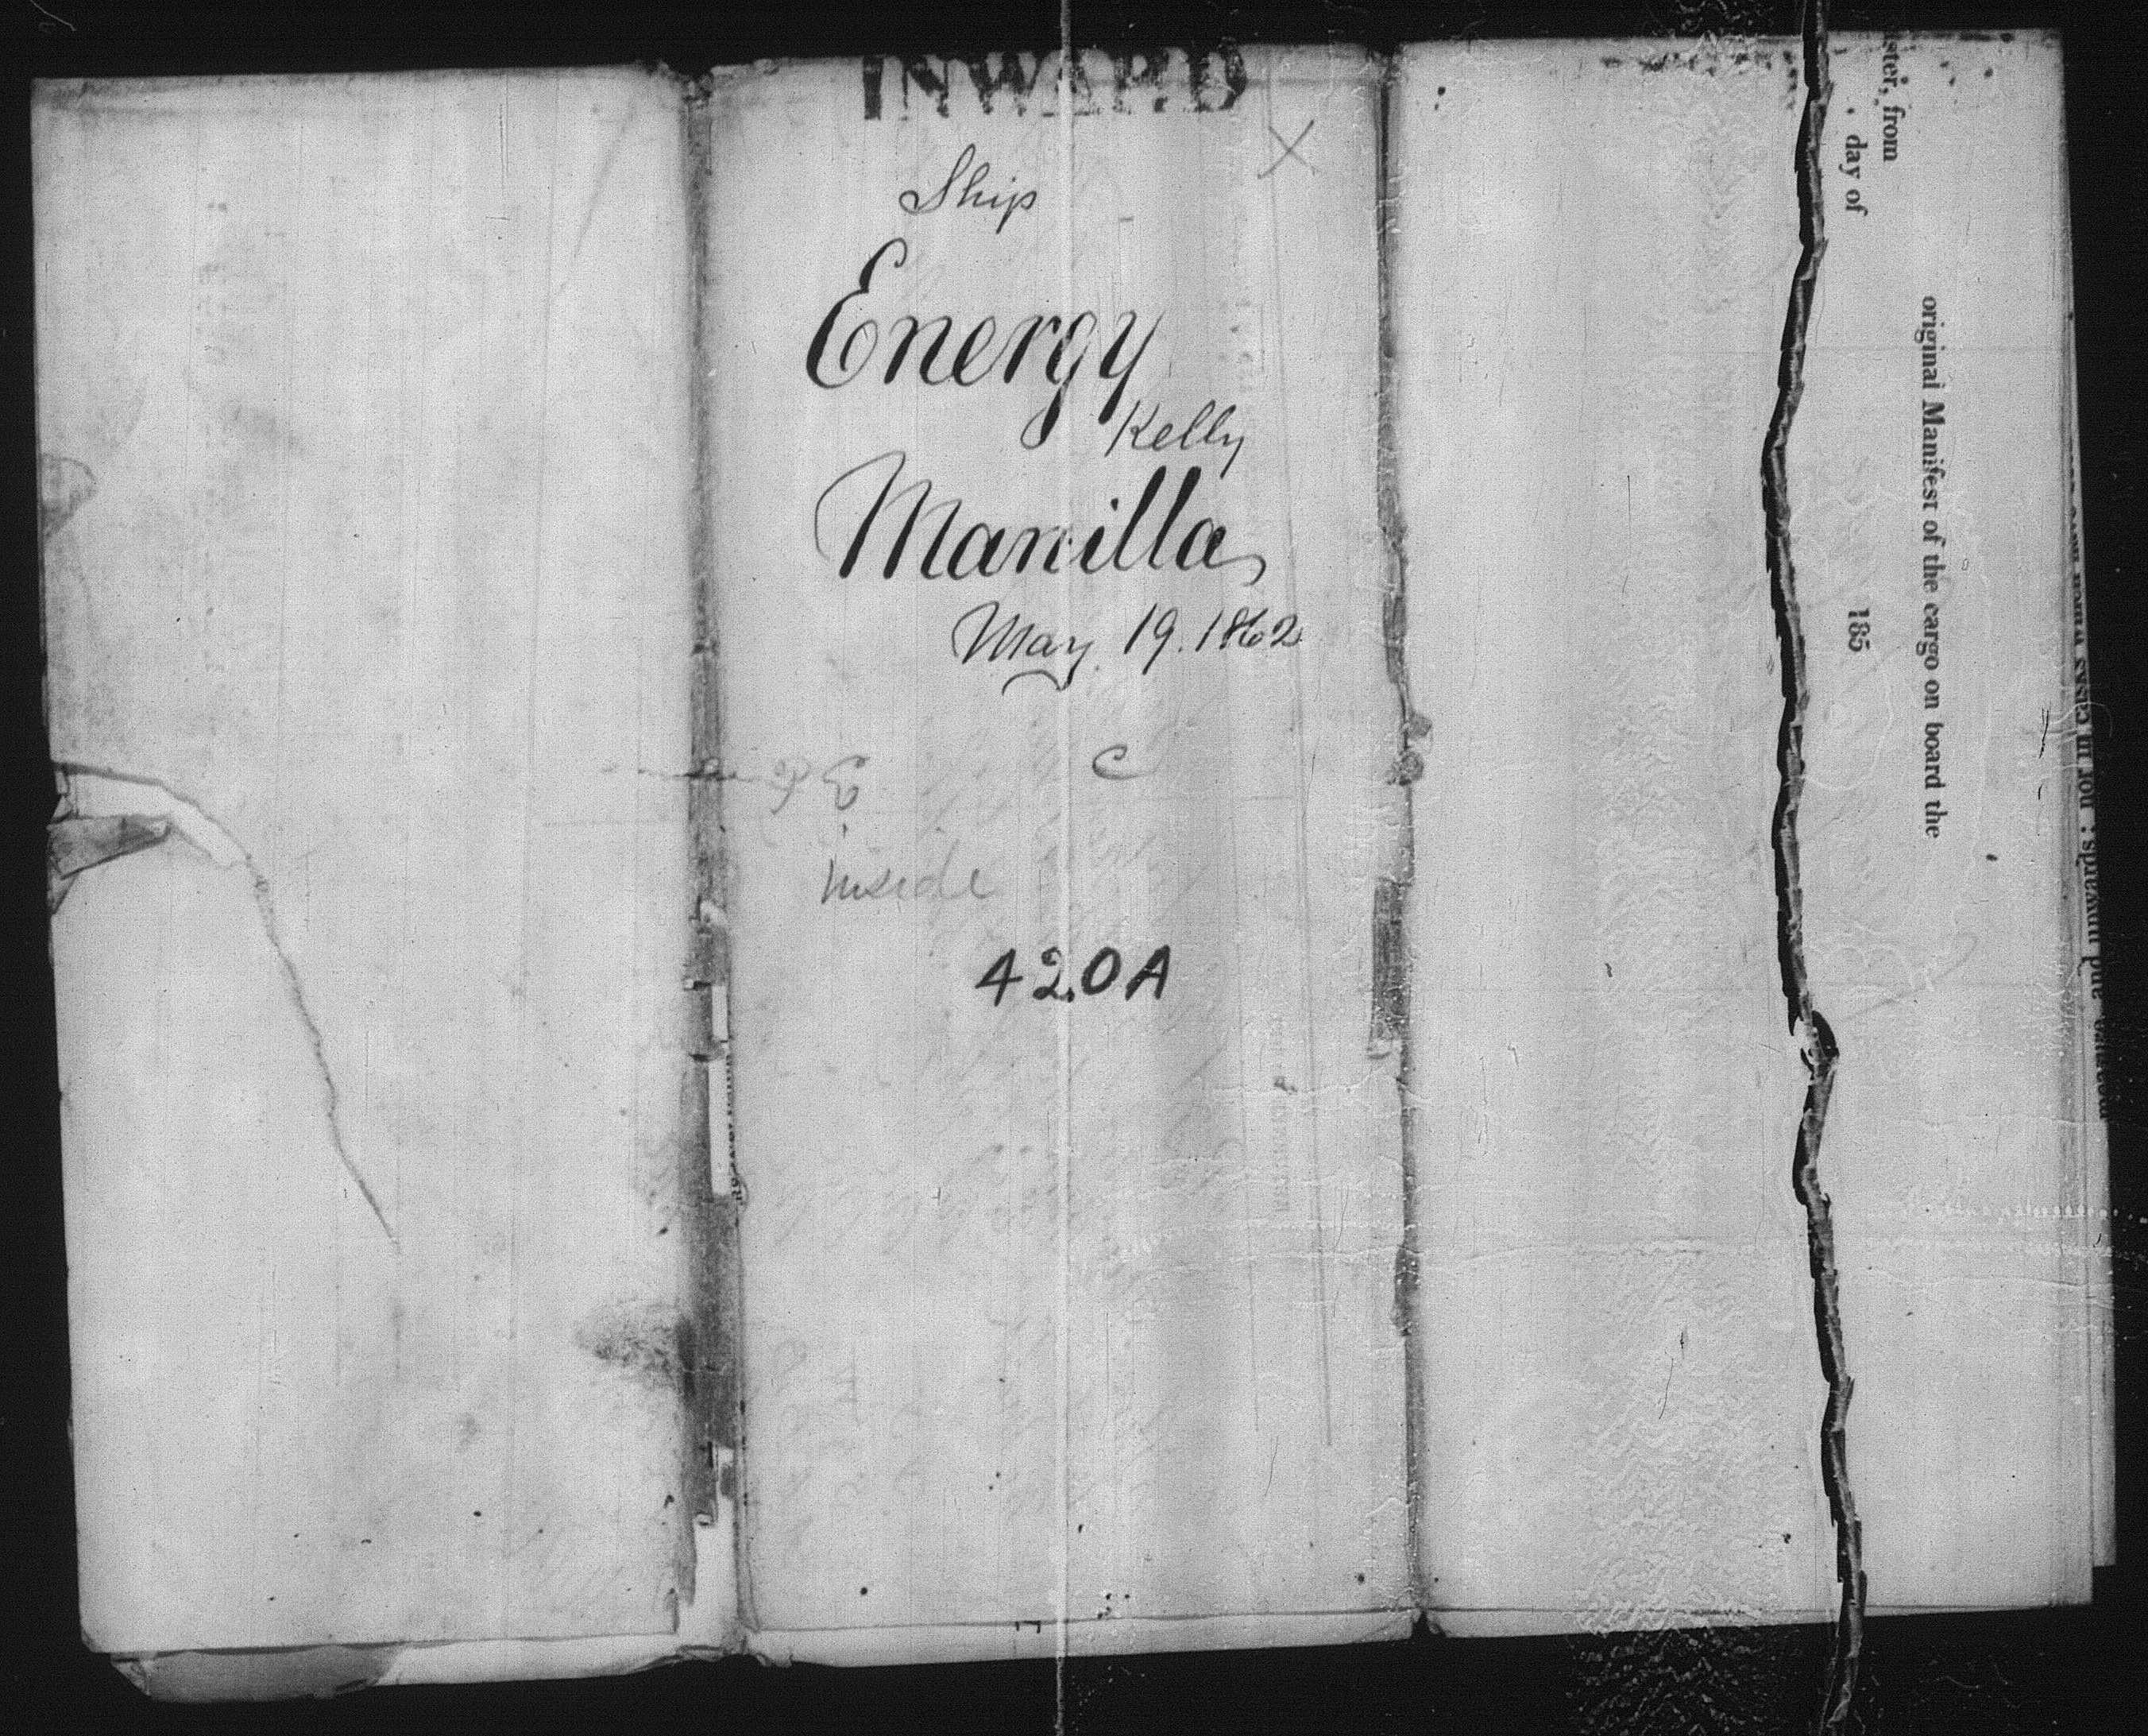 INWARD
Ship
Energy
Kelly
Manilla
May 19. 1862
E C
Inside
420A
from
day of
185
original Manifest of the cargo on board the
and inwards; nor in casks which have